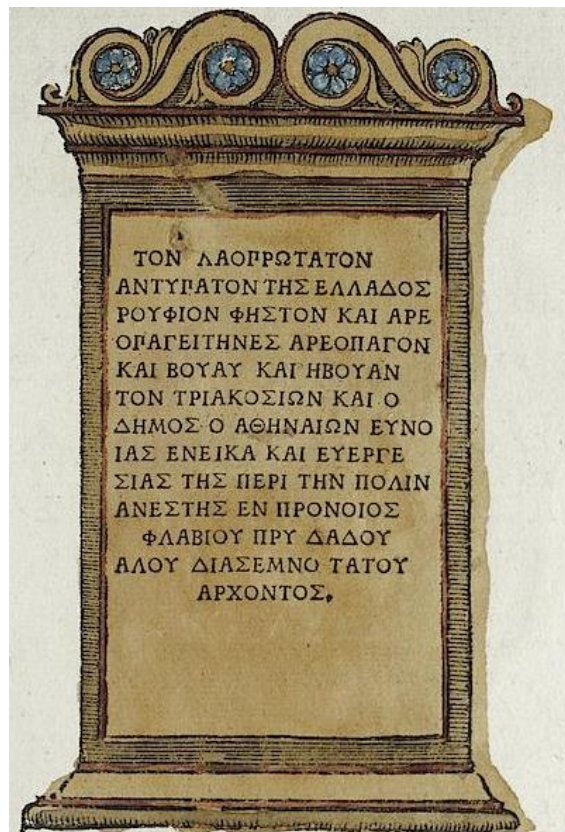 ΤΟΝ ΛΑΟΠΡΩΤΑΤΟΝ
ΑΝΤΥΠΑΤΟΝ ΤΗΣ ΕΛΛΑΔΟΣ
ΡΟΥΦΙΟΝ ΦΗΣΤΟΝ ΚΑΙ ΑΡΕ
ΟΠΑΓΕΙΤΗΝΕΣ ΑΡΕΟΠΑΓΟΝ
ΚΑΙ ΒΟΥΑΥ ΚΑΙ ΗΒΟΥΑΝ
ΤΟΝ ΤΡΙΑΚΟΣΙΩΝ ΚΑΙ Ο
ΔΗΜΟΣ Ο ΑΘΗΝΑΙΩΝ ΕΥΝΟ
ΙΑΣ ΕΝΕΙΚΑ ΚΑΙ ΕΥΕΡΓΕ
ΣΙΑΣ ΤΗΣ ΠΕΡΙ ΤΗΝ ΠΟΛΙΝ
ΑΝΕΣΤΗΣ ΕΝ ΠΡΟΝΟΙΟΣ
ΦΛΑΒΙΟΥ ΠΡΥ ΔΑΔΟΥ
ΑΛΟΥ ΔΙΑΣΕΜΝΟ ΤΑΤΟΥ
ΑΡΧΟΝΤΟΣ.